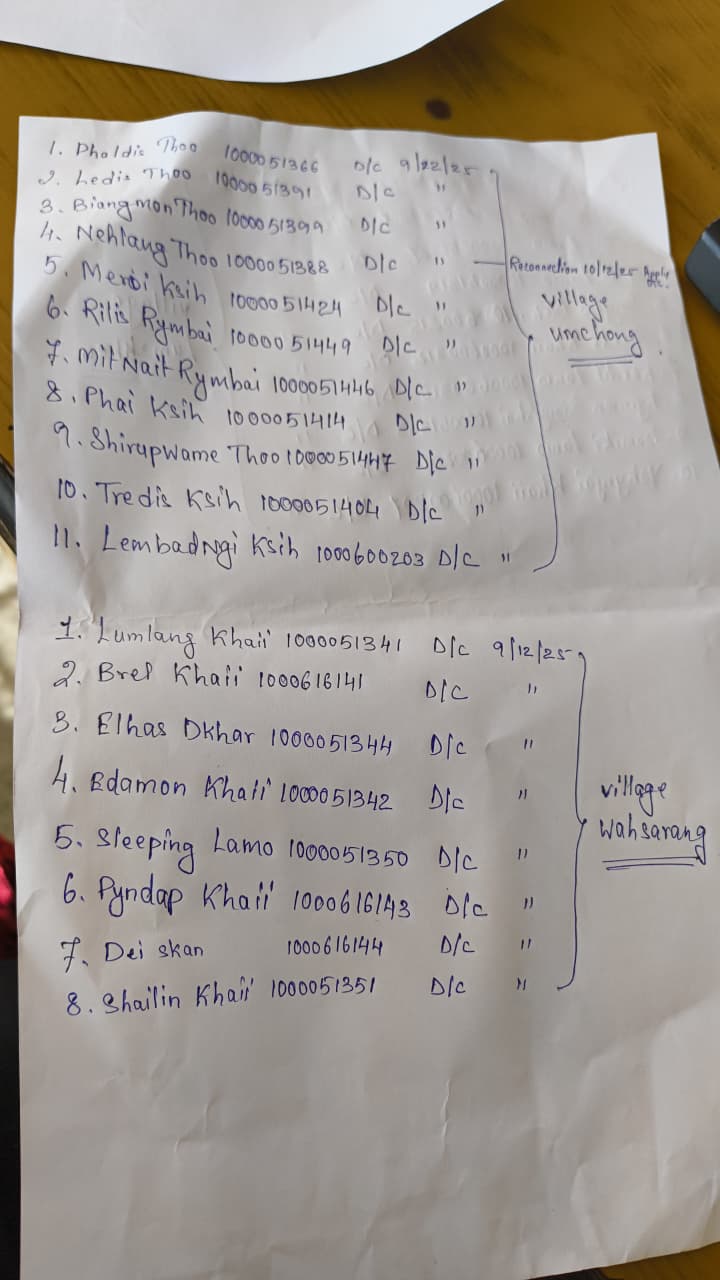 1. Pholdis Thoo 1000051366 D/c 9/12/25
2. Ledis Thoo 1000051391 D/c "
3. BiangmonThoo 1000051399 D/c "
4. Nehlang Thoo 1000051388 D/c " — Reconnection 10/12/25 Apply
5. Meroi Ksih 1000051424 D/c "
village
umchong
6. Rilis Rymbai 1000051449 D/c "
7. Mit Nait Rymbai 1000051446 D/c "
8. Phai Ksih 1000051414 D/c "
9. Shirupwame Thoo 1000051447 D/c "
10. Tredis Ksih 1000051404 D/c "
11. LembadNgi Ksih 1000600203 D/c "
1. Lumlang Khaii 1000051341 D/c 9/12/25
2. Brel Khaii 1000616141 D/c "
3. Elhas Dkhar 1000051344 D/c "
4. Edamon Khaii 1000051342 D/c "
village
Wahsarang
5. Sleeping Lamo 1000051350 D/c "
6. Pyndap Khaii 1000616143 D/c "
7. Dei skan 1000616144 D/c "
8. Shailin Khaii 1000051351 D/c "